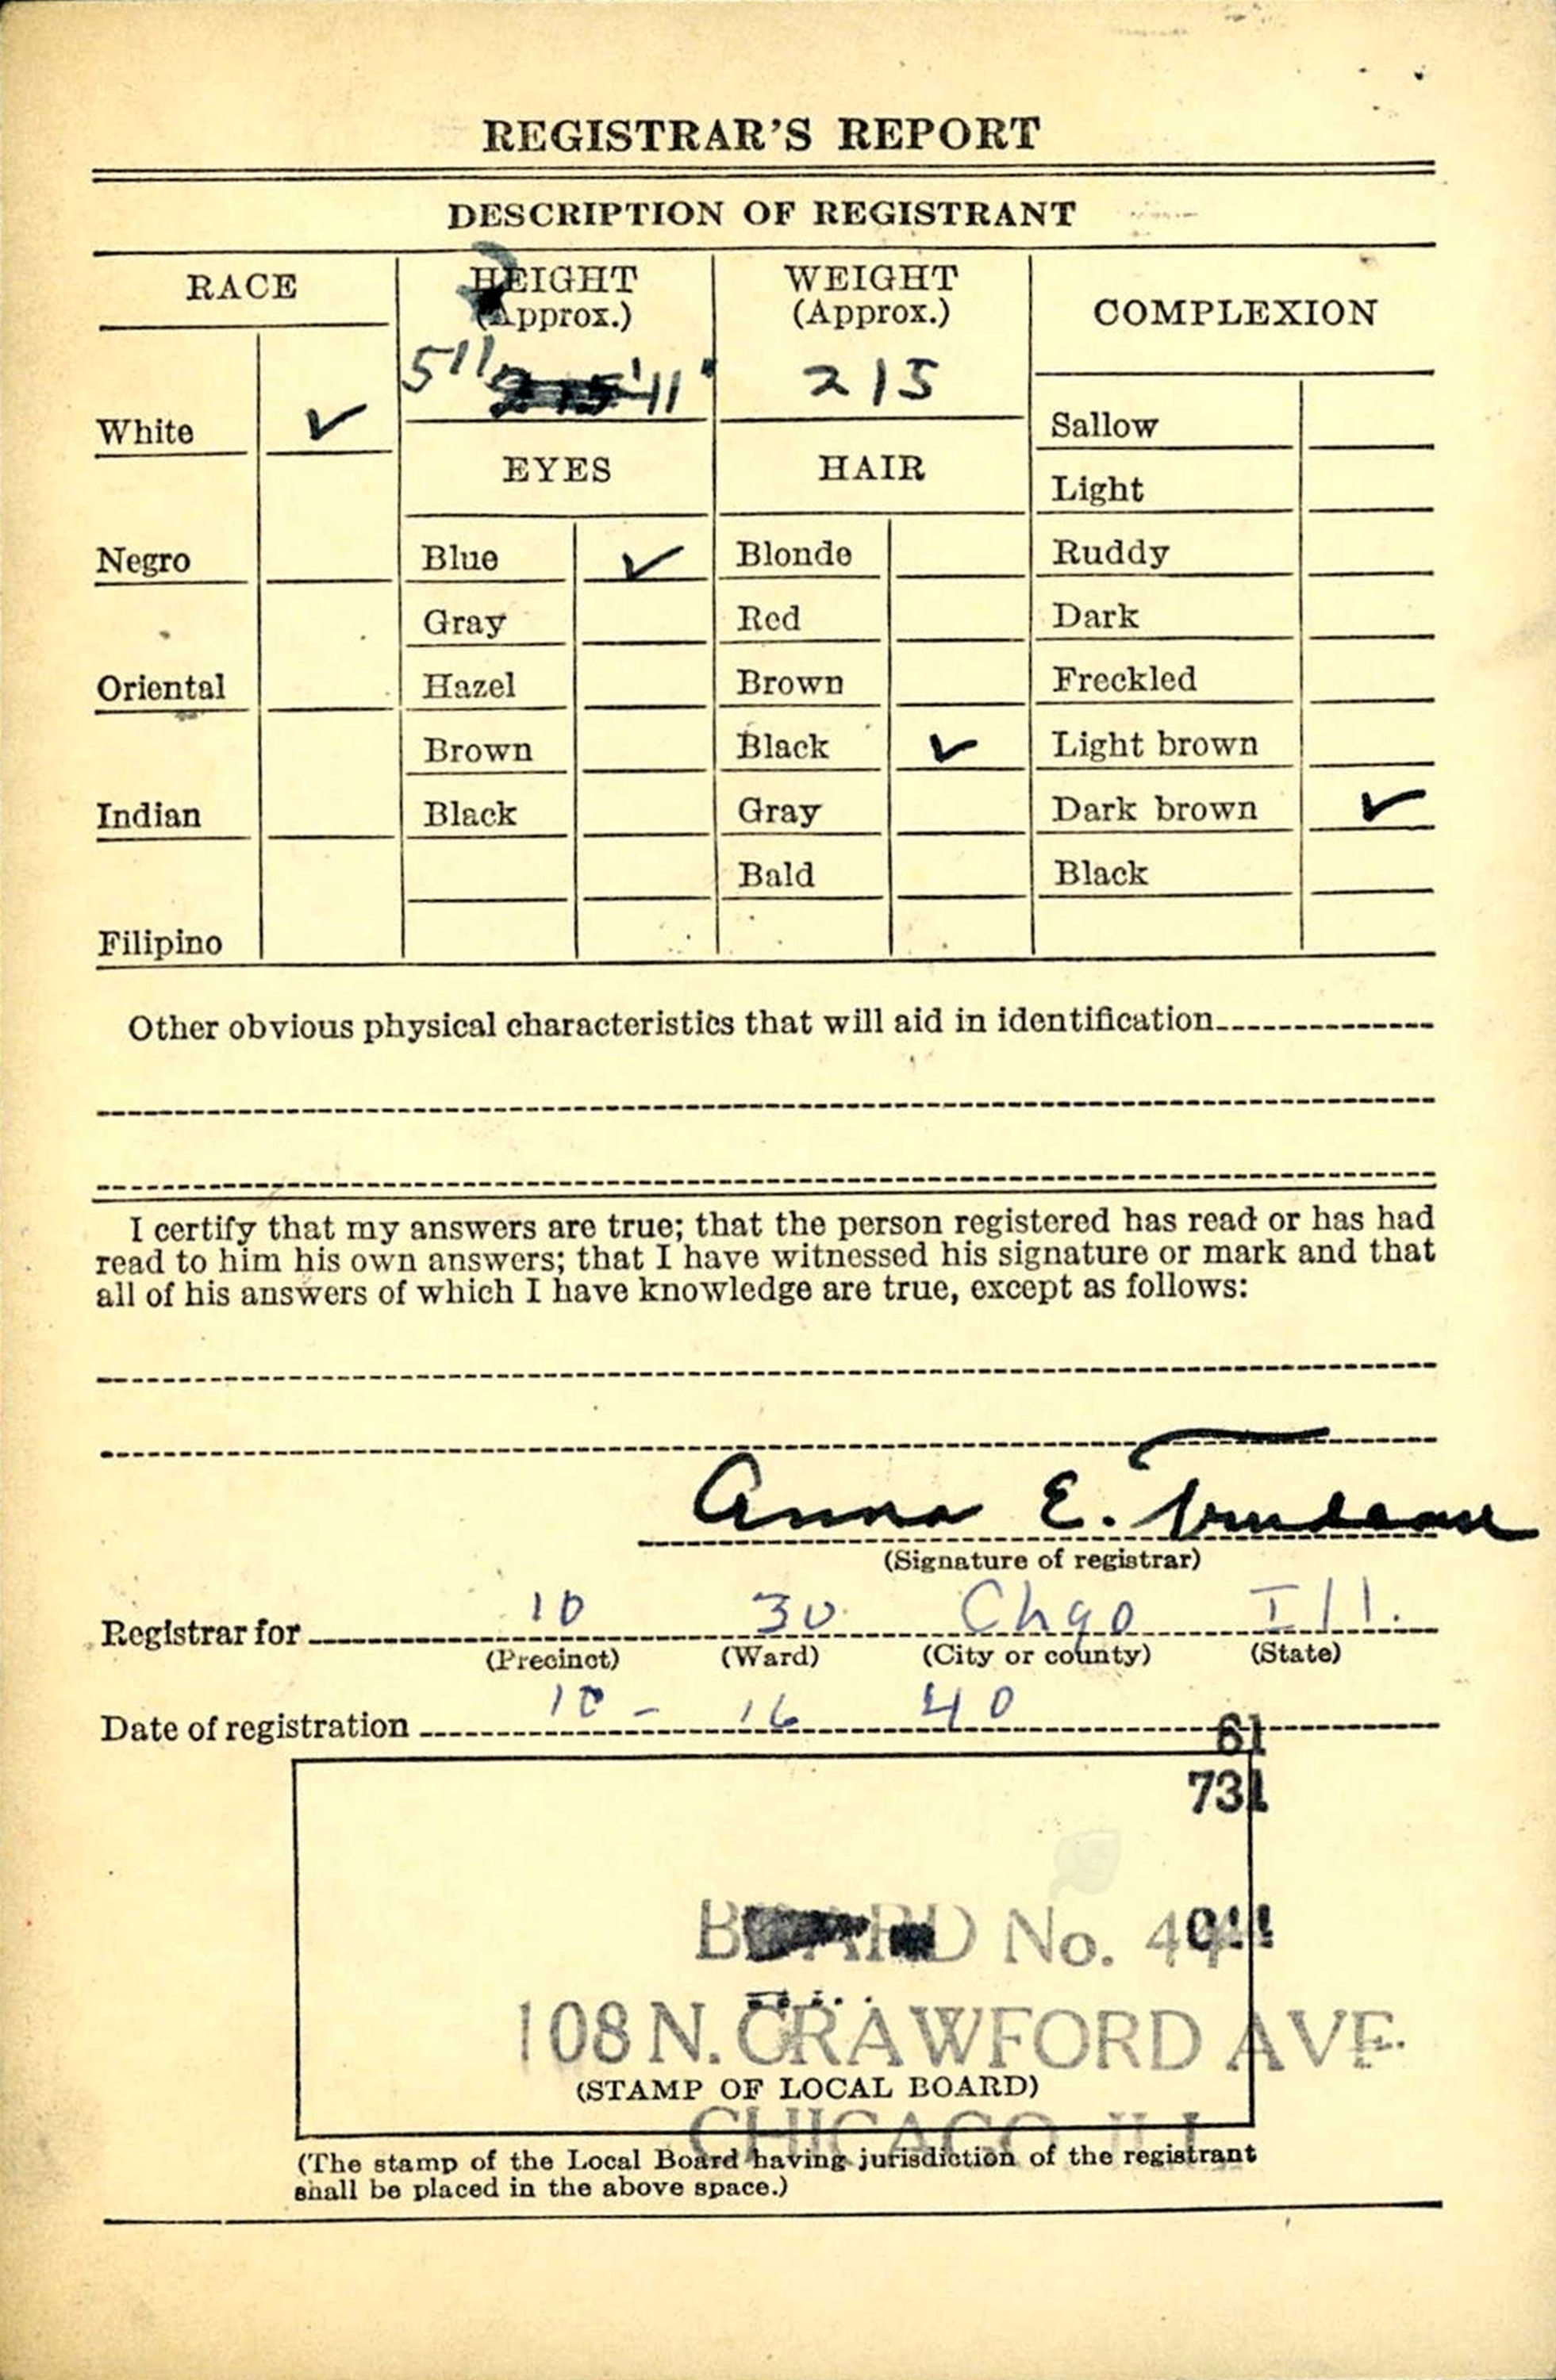 REGISTRAR'S REPORT
DESCRIPTION OF REGISTRANT
RACE
HEIGHT
(Approx.)
WEIGHT
(Approx.)
COMPLEXION
5 11
'11"
215
White ✓
EYES
HAIR
Sallow
Light
Negro
Blue ✓
Blonde
Ruddy
Gray
Red
Dark
Oriental
Hazel
Brown
Freckled
Brown
Black ✓
Light brown
Indian
Black
Gray
Dark brown ✓
Bald
Black
Filipino
Other obvious physical characteristics that will aid in identification
I certify that my answers are true; that the person registered has read or has had
read to him his own answers; that I have witnessed his signature or mark and that
all of his answers of which I have knowledge are true, except as follows:
Anna E. Trudeau
(Signature of registrar)
Registrar for 10 30 Chgo Ill.
(Precinct) (Ward) (City or county) (State)
Date of registration 10 - 16 40
61
731
BOARD No.
108 N. CRAWFORD AVE.
(STAMP OF LOCAL BOARD)
CHICAGO ILL
(The stamp of the Local Board having jurisdiction of the registrant
shall be placed in the above space.)